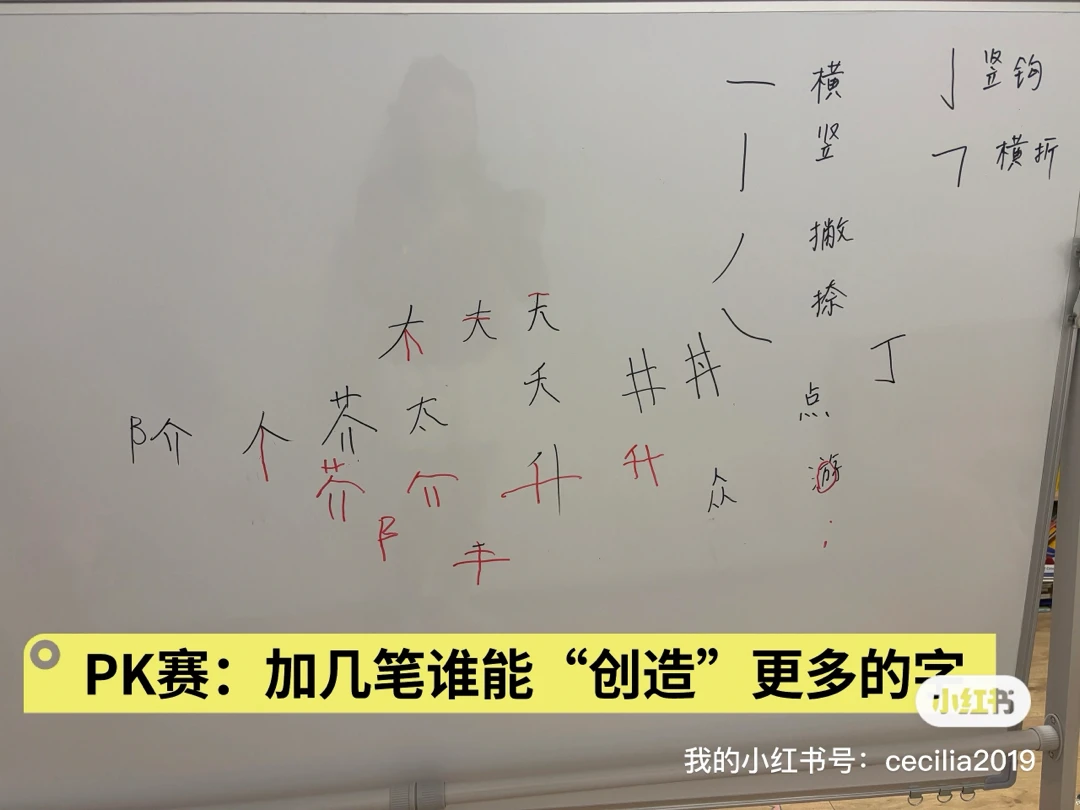 一 横 亅 竖钩
丨 竖 ㇕ 横折
丿 撇
㇏ 捺
木 夫 天
丅
阶 个 芥 太 夭 井 丼 点
芥 介 升 升 众 游
阝 丰
PK赛：加几笔谁能“创造”更多的字
小红书
我的小红书号：cecilia2019